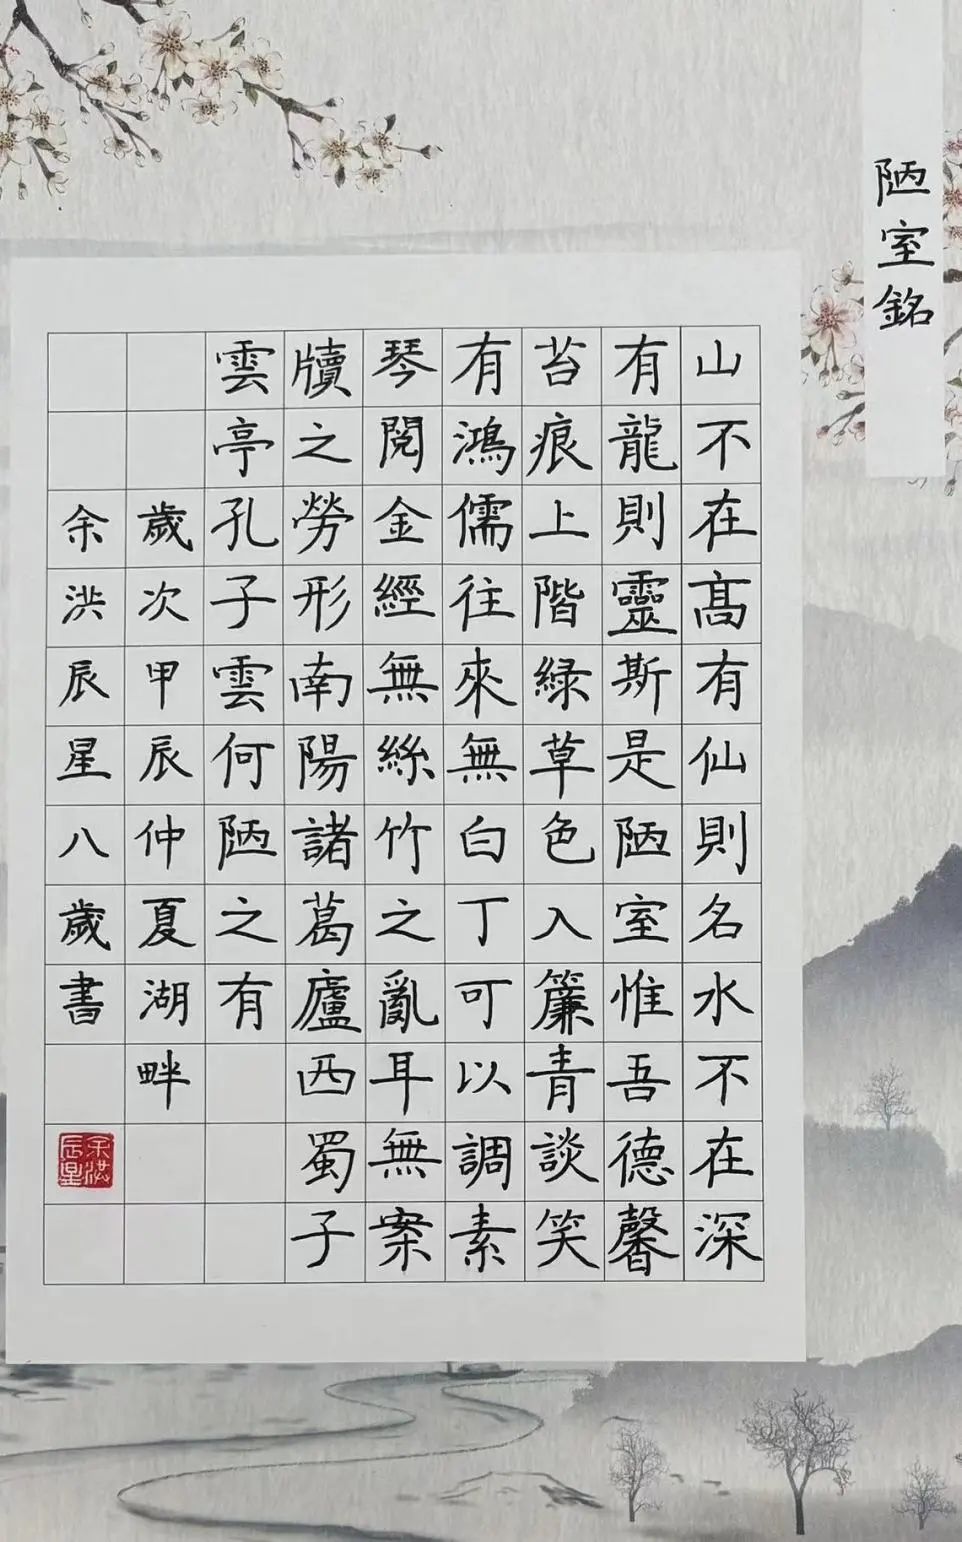 陋室銘
山不在髙有仙則名水不在深
有龍則靈斯是陋室惟吾德馨
苔痕上階緑草色入簾青談笑
有鴻儒往來無白丁可以調素
琴閱金經無絲竹之亂耳無案
牘之勞形南陽諸葛廬西蜀子
雲亭孔子雲何陋之有
歲次甲辰仲夏湖畔
余洪辰星八歲書
余洪辰星